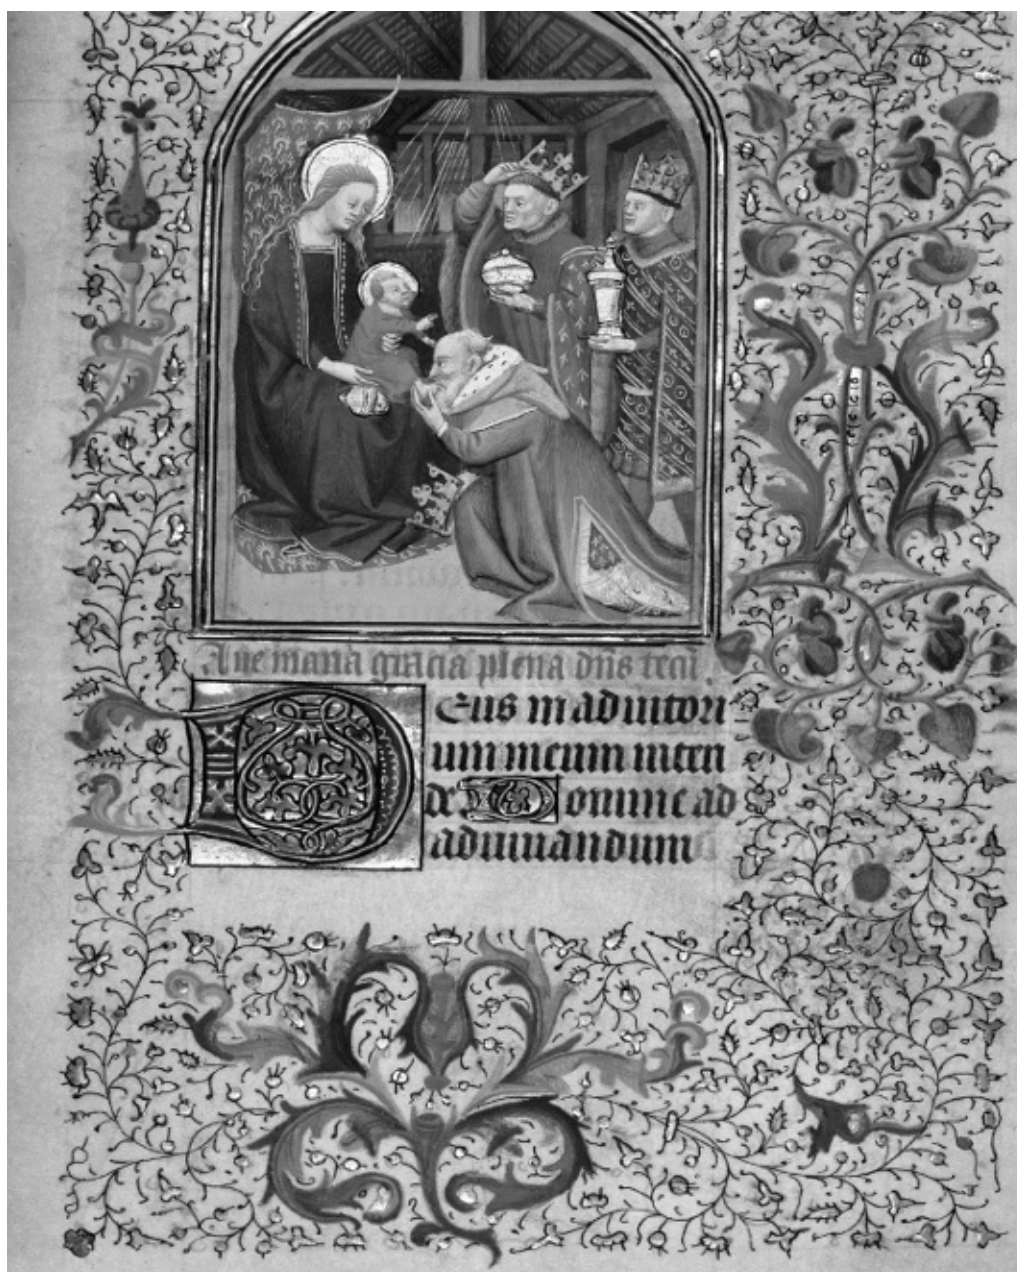 Aue maria gracia plena dns tecu.
Deus in adiutori
um meum inten
de Domine ad
adiuuandum